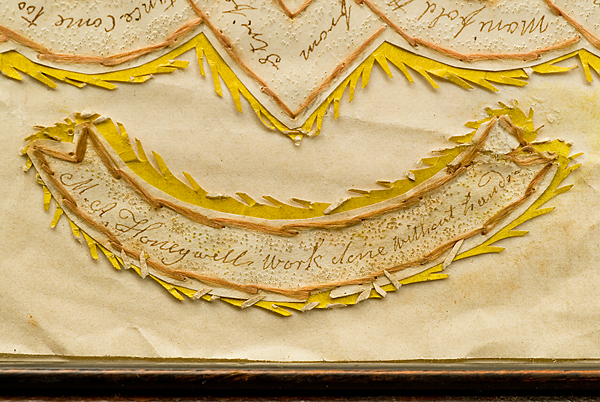 tance come too
Stri
from
Manifold
M. A Honeywell's work done without hands